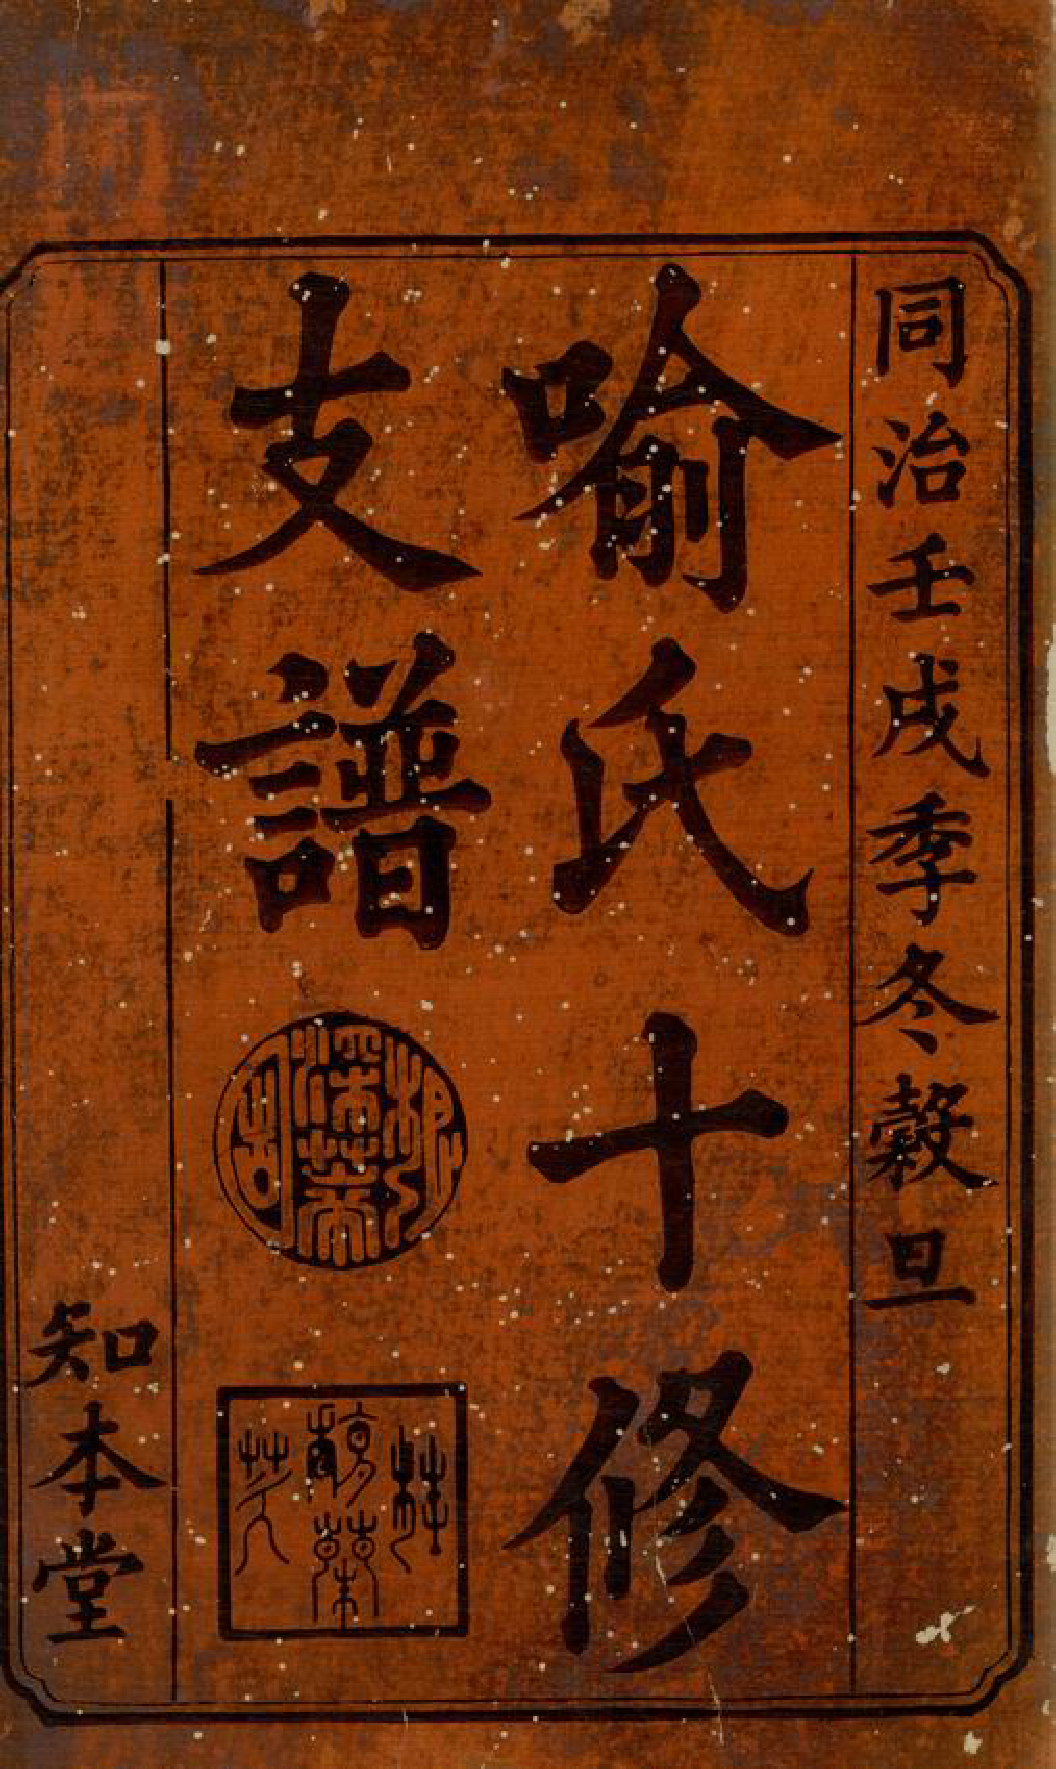 同治壬戌季冬穀旦
喻氏十修
支譜
知本堂